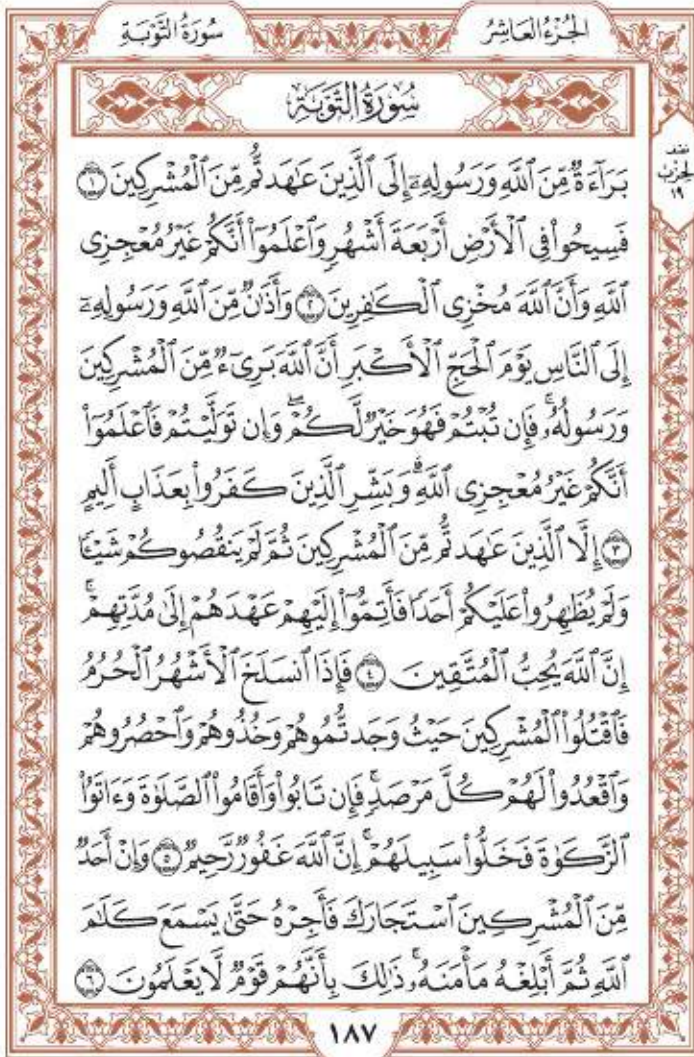 سُورَةُ التَّوْبَةِ
الجُزْءُ العَاشِرُ
سُورَةُ التَّوْبَةِ
نصف
الحزب
١٩
بَرَآءَةٌ مِّنَ ٱللَّهِ وَرَسُولِهِۦٓ إِلَى ٱلَّذِينَ عَٰهَدتُّم مِّنَ ٱلْمُشْرِكِينَ ١
فَسِيحُوا۟ فِى ٱلْأَرْضِ أَرْبَعَةَ أَشْهُرٍ وَٱعْلَمُوٓا۟ أَنَّكُمْ غَيْرُ مُعْجِزِى
ٱللَّهِ وَأَنَّ ٱللَّهَ مُخْزِى ٱلْكَٰفِرِينَ ٢ وَأَذَٰنٌ مِّنَ ٱللَّهِ وَرَسُولِهِۦٓ
إِلَى ٱلنَّاسِ يَوْمَ ٱلْحَجِّ ٱلْأَكْبَرِ أَنَّ ٱللَّهَ بَرِىٓءٌ مِّنَ ٱلْمُشْرِكِينَ
وَرَسُولُهُۥ ۚ فَإِن تُبْتُمْ فَهُوَ خَيْرٌ لَّكُمْ ۖ وَإِن تَوَلَّيْتُمْ فَٱعْلَمُوٓا۟
أَنَّكُمْ غَيْرُ مُعْجِزِى ٱللَّهِ ۗ وَبَشِّرِ ٱلَّذِينَ كَفَرُوا۟ بِعَذَابٍ أَلِيمٍ
٣ إِلَّا ٱلَّذِينَ عَٰهَدتُّم مِّنَ ٱلْمُشْرِكِينَ ثُمَّ لَمْ يَنقُصُوكُمْ شَيْـًٔا
وَلَمْ يُظَٰهِرُوا۟ عَلَيْكُمْ أَحَدًا فَأَتِمُّوٓا۟ إِلَيْهِمْ عَهْدَهُمْ إِلَىٰ مُدَّتِهِمْ ۚ
إِنَّ ٱللَّهَ يُحِبُّ ٱلْمُتَّقِينَ ٤ فَإِذَا ٱنسَلَخَ ٱلْأَشْهُرُ ٱلْحُرُمُ
فَٱقْتُلُوا۟ ٱلْمُشْرِكِينَ حَيْثُ وَجَدتُّمُوهُمْ وَخُذُوهُمْ وَٱحْصُرُوهُمْ
وَٱقْعُدُوا۟ لَهُمْ كُلَّ مَرْصَدٍ ۚ فَإِن تَابُوا۟ وَأَقَامُوا۟ ٱلصَّلَوٰةَ وَءَاتَوُا۟
ٱلزَّكَوٰةَ فَخَلُّوا۟ سَبِيلَهُمْ ۚ إِنَّ ٱللَّهَ غَفُورٌ رَّحِيمٌ ٥ وَإِنْ أَحَدٌ
مِّنَ ٱلْمُشْرِكِينَ ٱسْتَجَارَكَ فَأَجِرْهُ حَتَّىٰ يَسْمَعَ كَلَٰمَ
ٱللَّهِ ثُمَّ أَبْلِغْهُ مَأْمَنَهُۥ ۚ ذَٰلِكَ بِأَنَّهُمْ قَوْمٌ لَّا يَعْلَمُونَ ٦
١٨٧